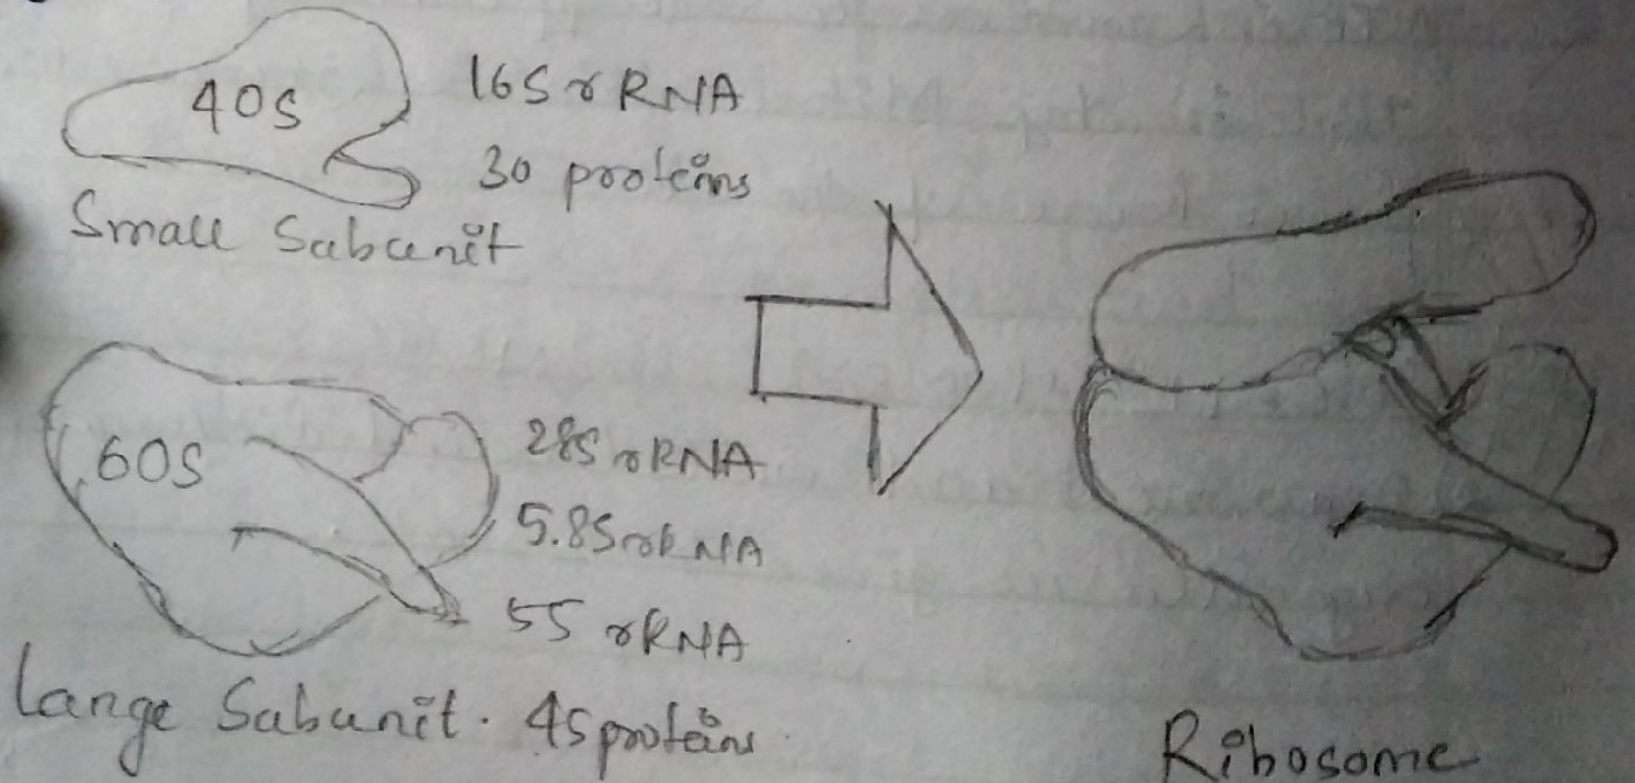 40S
16S rRNA
30 proteins
Small Subunit
60S
28S rRNA
5.8S rRNA
5S rRNA
Large Subunit. 45 proteins
Ribosome